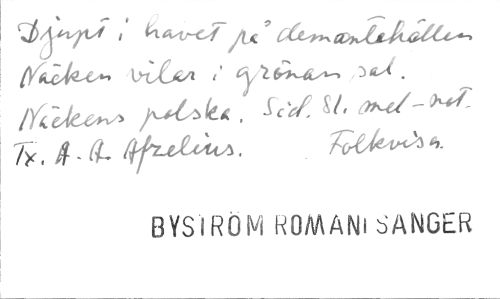 Djupt i havet på demantehällen
Näcken vilar i grönan sal.
Näckens polska. Sid. 81. mel-not.
Tx. A. A. Afzelius. Folkvisa.
BYSTRÖM ROMANI SÅNGER